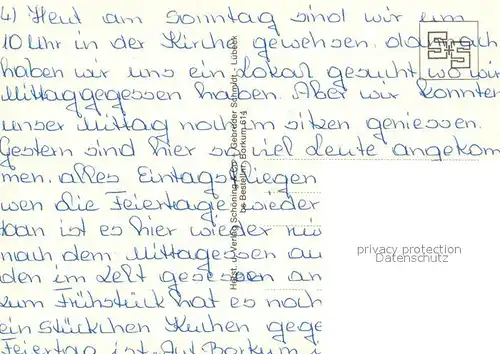 4) Heut am Sonntag sind wir um
10 Uhr in der Kirche gewehsen. danach
haben wir uns ein Lokal gesucht wo wir
Mittaggegessen haben. Aber wir konnten
unser Mittag noch im sitzen geniessen.
Gestern sind hier so viel Leute angekom
men. alles Eintagsfliegen
wen die Feiertage wieder
dan ist es hier wieder
nach dem Mittagessen
den im Zelt gesessen an
zum Frühstück hat es noch
ein stückchen Kuchen gege
Feiertag ist. Auf Borkum
Herst. u. Verlag Schöning & Co + Gebrüder Schmidt - Lübeck
be Bestellnr. Borkum 614
S+S
privacy protection
Datenschutz